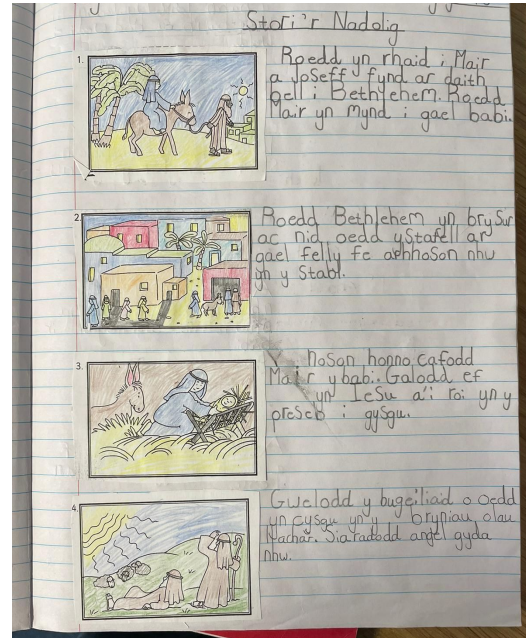 Stori'r Nadolig
1.
Roedd yn rhaid i Mair
a Joseff fynd ar daith
bell i Bethlehem. Roedd
Mair yn mynd i gael babi.
2.
Roedd Bethlehem yn brysur
ac nid oedd ystafell ar
gael felly fe arhhoson nhw
yn y stabl.
3.
noson honno cafodd
Mair y babi. Galodd ef
yn Iesu a'i roi yn y
preseb i gysgu.
4.
Gwelodd y bugeiliaid o oedd
yn cysgu yn y bryniau, olau
llachar. Siaradodd angel gyda
nhw.